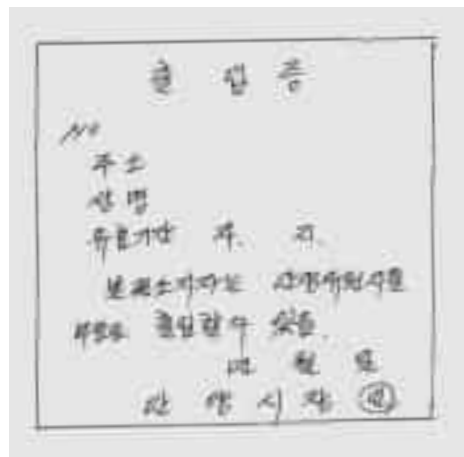 출 입 증
No
주소
성명
유효기간 자. 지.
본증소지자는
출입할수 있음.
년 월 일
안 양 시 장 인